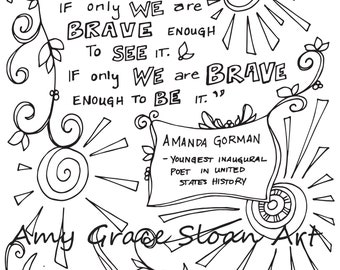 IF only WE are
BRAVE enough
TO SEE IT.
IF only WE are BRAVE
ENOUGH TO BE IT."
AMANDA GORMAN
- YOUNGEST INAUGURAL
POET IN UNITED
STATES HISTORY
Amy Grace Sloan Art